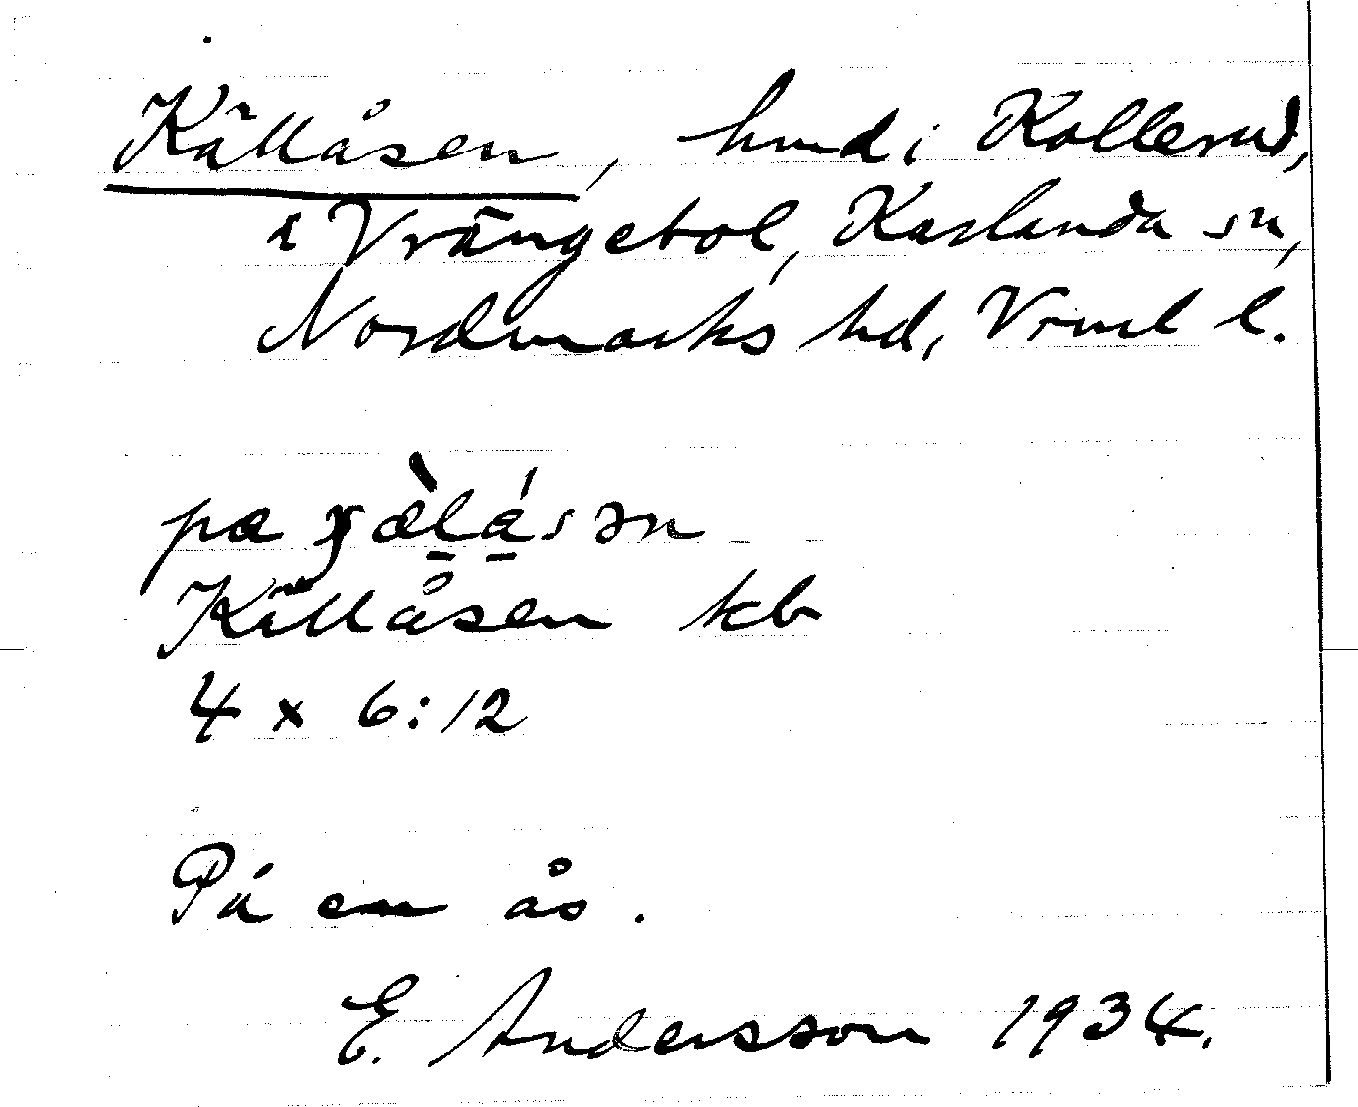 Källåsen, hmd i Kollerud,
i Vrängebol, Karlanda sn,
Nordmarks hd, Vrml l.
pa
Källåsen kb
4 x 6:12
På en ås.
E. Andersson 1934.